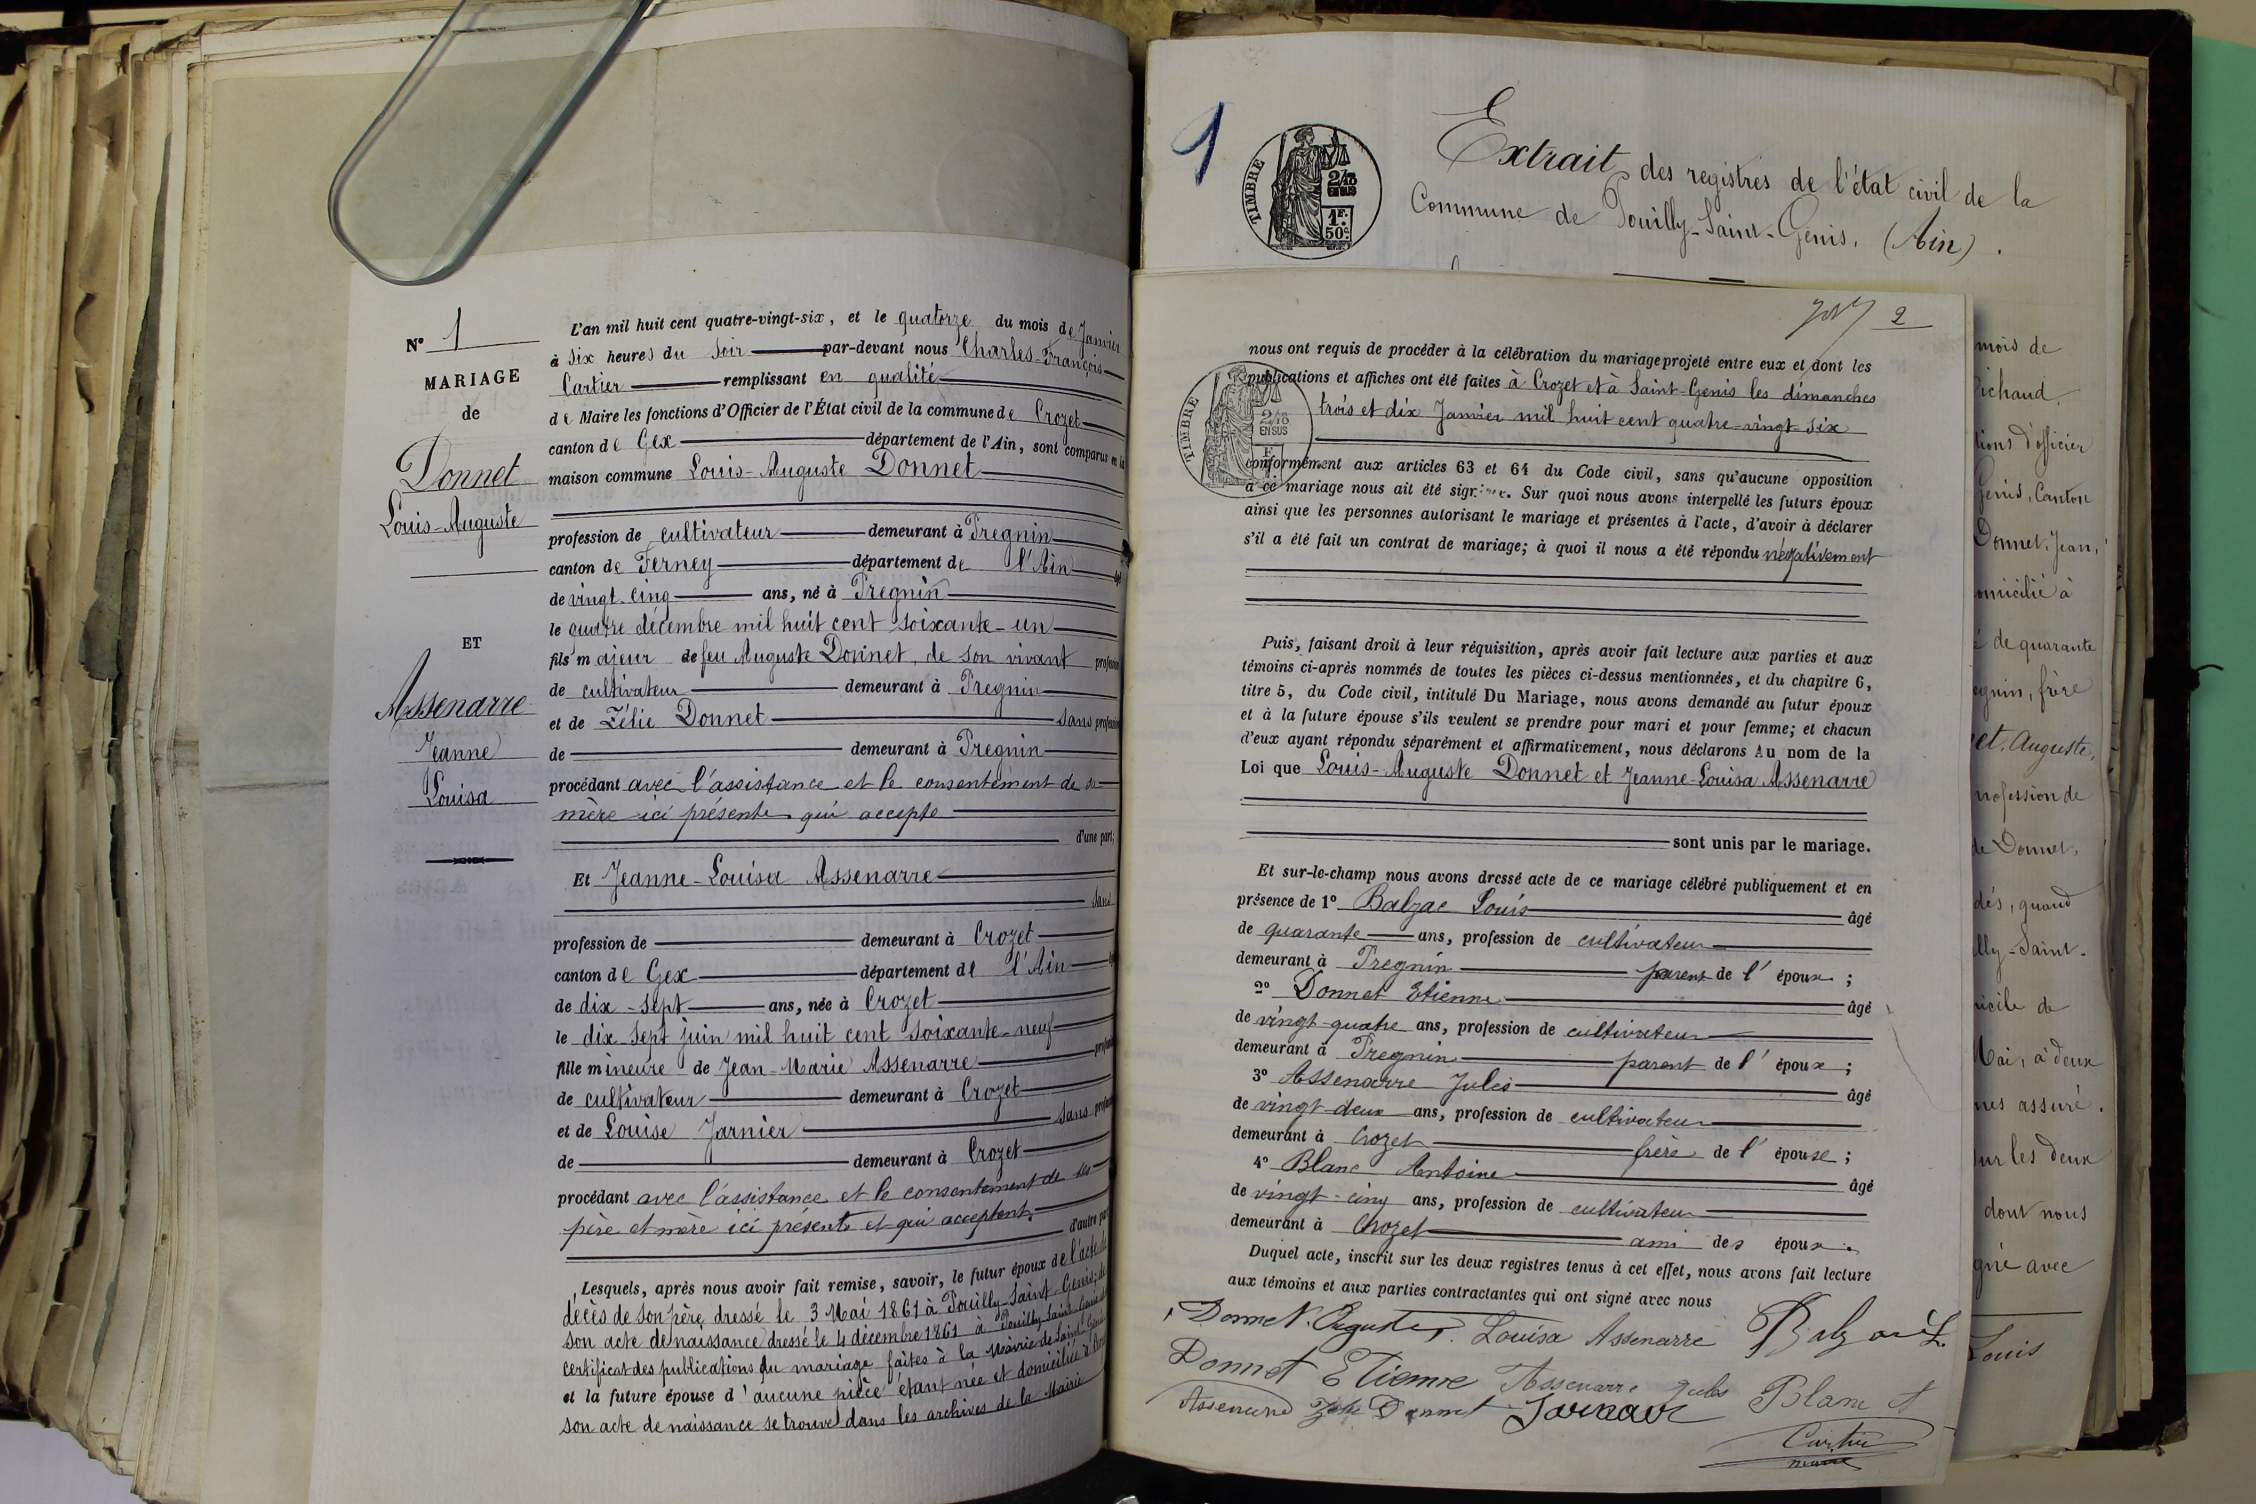 N° 1
MARIAGE
de
Donnet
Louis-Auguste
ET
Assenarre
Jeanne
Louisa
L'an mil huit cent quatre-vingt-six, et le quatorze du mois de Janvier
à six heures du soir par-devant nous Charles-François
Cartier remplissant en qualité
de Maire les fonctions d'Officier de l'État civil de la commune de Crozet
canton de Gex département de l'Ain, sont comparus en la
maison commune Louis-Auguste Donnet
profession de cultivateur demeurant à Pregnin
canton de Ferney département de l'Ain âgé
de vingt-cinq ans, né à Pregnin
le quatre décembre mil huit cent soixante-un
fils majeur de feu Auguste Donnet, de son vivant profession
de cultivateur demeurant à Pregnin
et de Zélie Donnet sans profession
de demeurant à Pregnin
procédant avec l'assistance et le consentement de sa
mère ici présente qui accepte
d'une part;
Et Jeanne-Louisa Assenarre
sans
profession de demeurant à Crozet
canton de Gex département de l'Ain
de dix-sept ans, née à Crozet
le dix-sept juin mil huit cent soixante-neuf
fille mineure de Jean-Marie Assenarre
de cultivateur demeurant à Crozet
et de Louise Jarnier sans
de demeurant à Crozet
procédant avec l'assistance et le consentement de ses
père et mère ici présents et qui acceptent.
d'autre part
Lesquels, après nous avoir fait remise, savoir, le futur époux de l'acte de
décès de son père dressé le 3 Mai 1861 à Pouilly-Saint-Genis, de
son acte de naissance dressé le 4 décembre 1861 à Pouilly-Saint-Genis et
certificat des publications du mariage faites à la Mairie de Saint-Genis
et la future épouse d'aucune pièce étant née et domiciliée à
son acte de naissance se trouve dans les archives de la Mairie
1
TIMBRE
2/10
EN SUS
1F.
50c.
Extrait des registres de l'état civil de la
Commune de Pouilly-Saint-Genis. (Ain).
2
nous ont requis de procéder à la célébration du mariage projeté entre eux et dont les
publications et affiches ont été faites à Crozet et à Saint-Genis les dimanches
trois et dix Janvier mil huit cent quatre-vingt-six
TIMBRE
2/10
EN SUS
conformément aux articles 63 et 64 du Code civil, sans qu'aucune opposition
à ce mariage nous ait été signifiée. Sur quoi nous avons interpellé les futurs époux
ainsi que les personnes autorisant le mariage et présentes à l'acte, d'avoir à déclarer
s'il a été fait un contrat de mariage; à quoi il nous a été répondu négativement
Puis, faisant droit à leur réquisition, après avoir fait lecture aux parties et aux
témoins ci-après nommés de toutes les pièces ci-dessus mentionnées, et du chapitre 6,
titre 5, du Code civil, intitulé Du Mariage, nous avons demandé au futur époux
et à la future épouse s'ils veulent se prendre pour mari et pour femme; et chacun
d'eux ayant répondu séparément et affirmativement, nous déclarons Au nom de la
Loi que Louis-Auguste Donnet et Jeanne-Louisa Assenarre
sont unis par le mariage.
Et sur-le-champ nous avons dressé acte de ce mariage célébré publiquement et en
présence de 1° Balzac Louis âgé
de quarante ans, profession de cultivateur
demeurant à Pregnin parent de l'époux;
2° Donnet Etienne âgé
de vingt-quatre ans, profession de cultivateur
demeurant à Pregnin parent de l'époux;
3° Assenarre Jules âgé
de vingt-deux ans, profession de cultivateur
demeurant à Crozet frère de l'épouse;
4° Blanc Antoine âgé
de vingt-cinq ans, profession de cultivateur
demeurant à Crozet ami des époux.
Duquel acte, inscrit sur les deux registres tenus à cet effet, nous avons fait lecture
aux témoins et aux parties contractantes qui ont signé avec nous
Donnet Auguste. Louisa Assenarre Balzac L.
Donnet Etienne Assenarre Jules Blanc A
Assenarre Zélie Donnet
Cartier
maire
mois de
Richaud
tions d'officier
Genis, Canton
Donnet, Jean,
omicilié à
é de quarante
egnin, frère
et, Auguste,
profession de
de Donnet,
dés, quand
lly-Saint-
icile de
Mai, à deux
nes assuré.
sur les deux
dont nous
gné avec
Louis